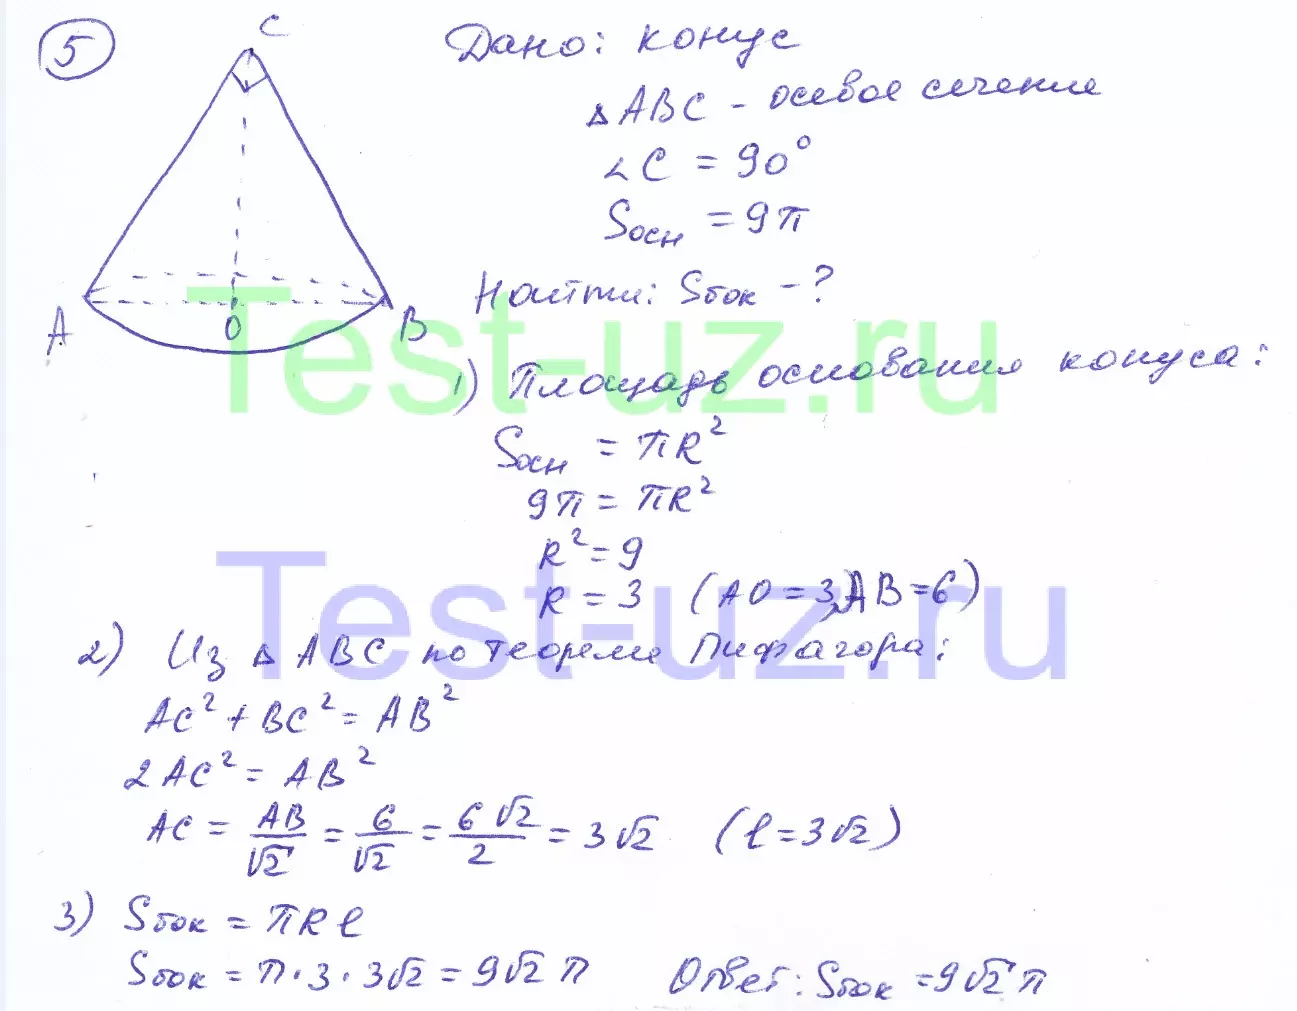 5
C
A
O
B
Дано: конус
△ABC - осевое сечение
∠C = 90°
Sосн = 9π
Найти: Sбок - ?
1) Площадь основания конуса:
Sосн = πR²
9π = πR²
R² = 9
R = 3 (AO = 3, AB = 6)
2) Из △ABC по теореме Пифагора:
AC² + BC² = AB²
2AC² = AB²
AC = AB/√2 = 6/√2 = 6√2/2 = 3√2 (l = 3√2)
3) Sбок = πRl
Sбок = π·3·3√2 = 9√2 π Ответ: Sбок = 9√2 π
Test-uz.ru
Test-uz.ru